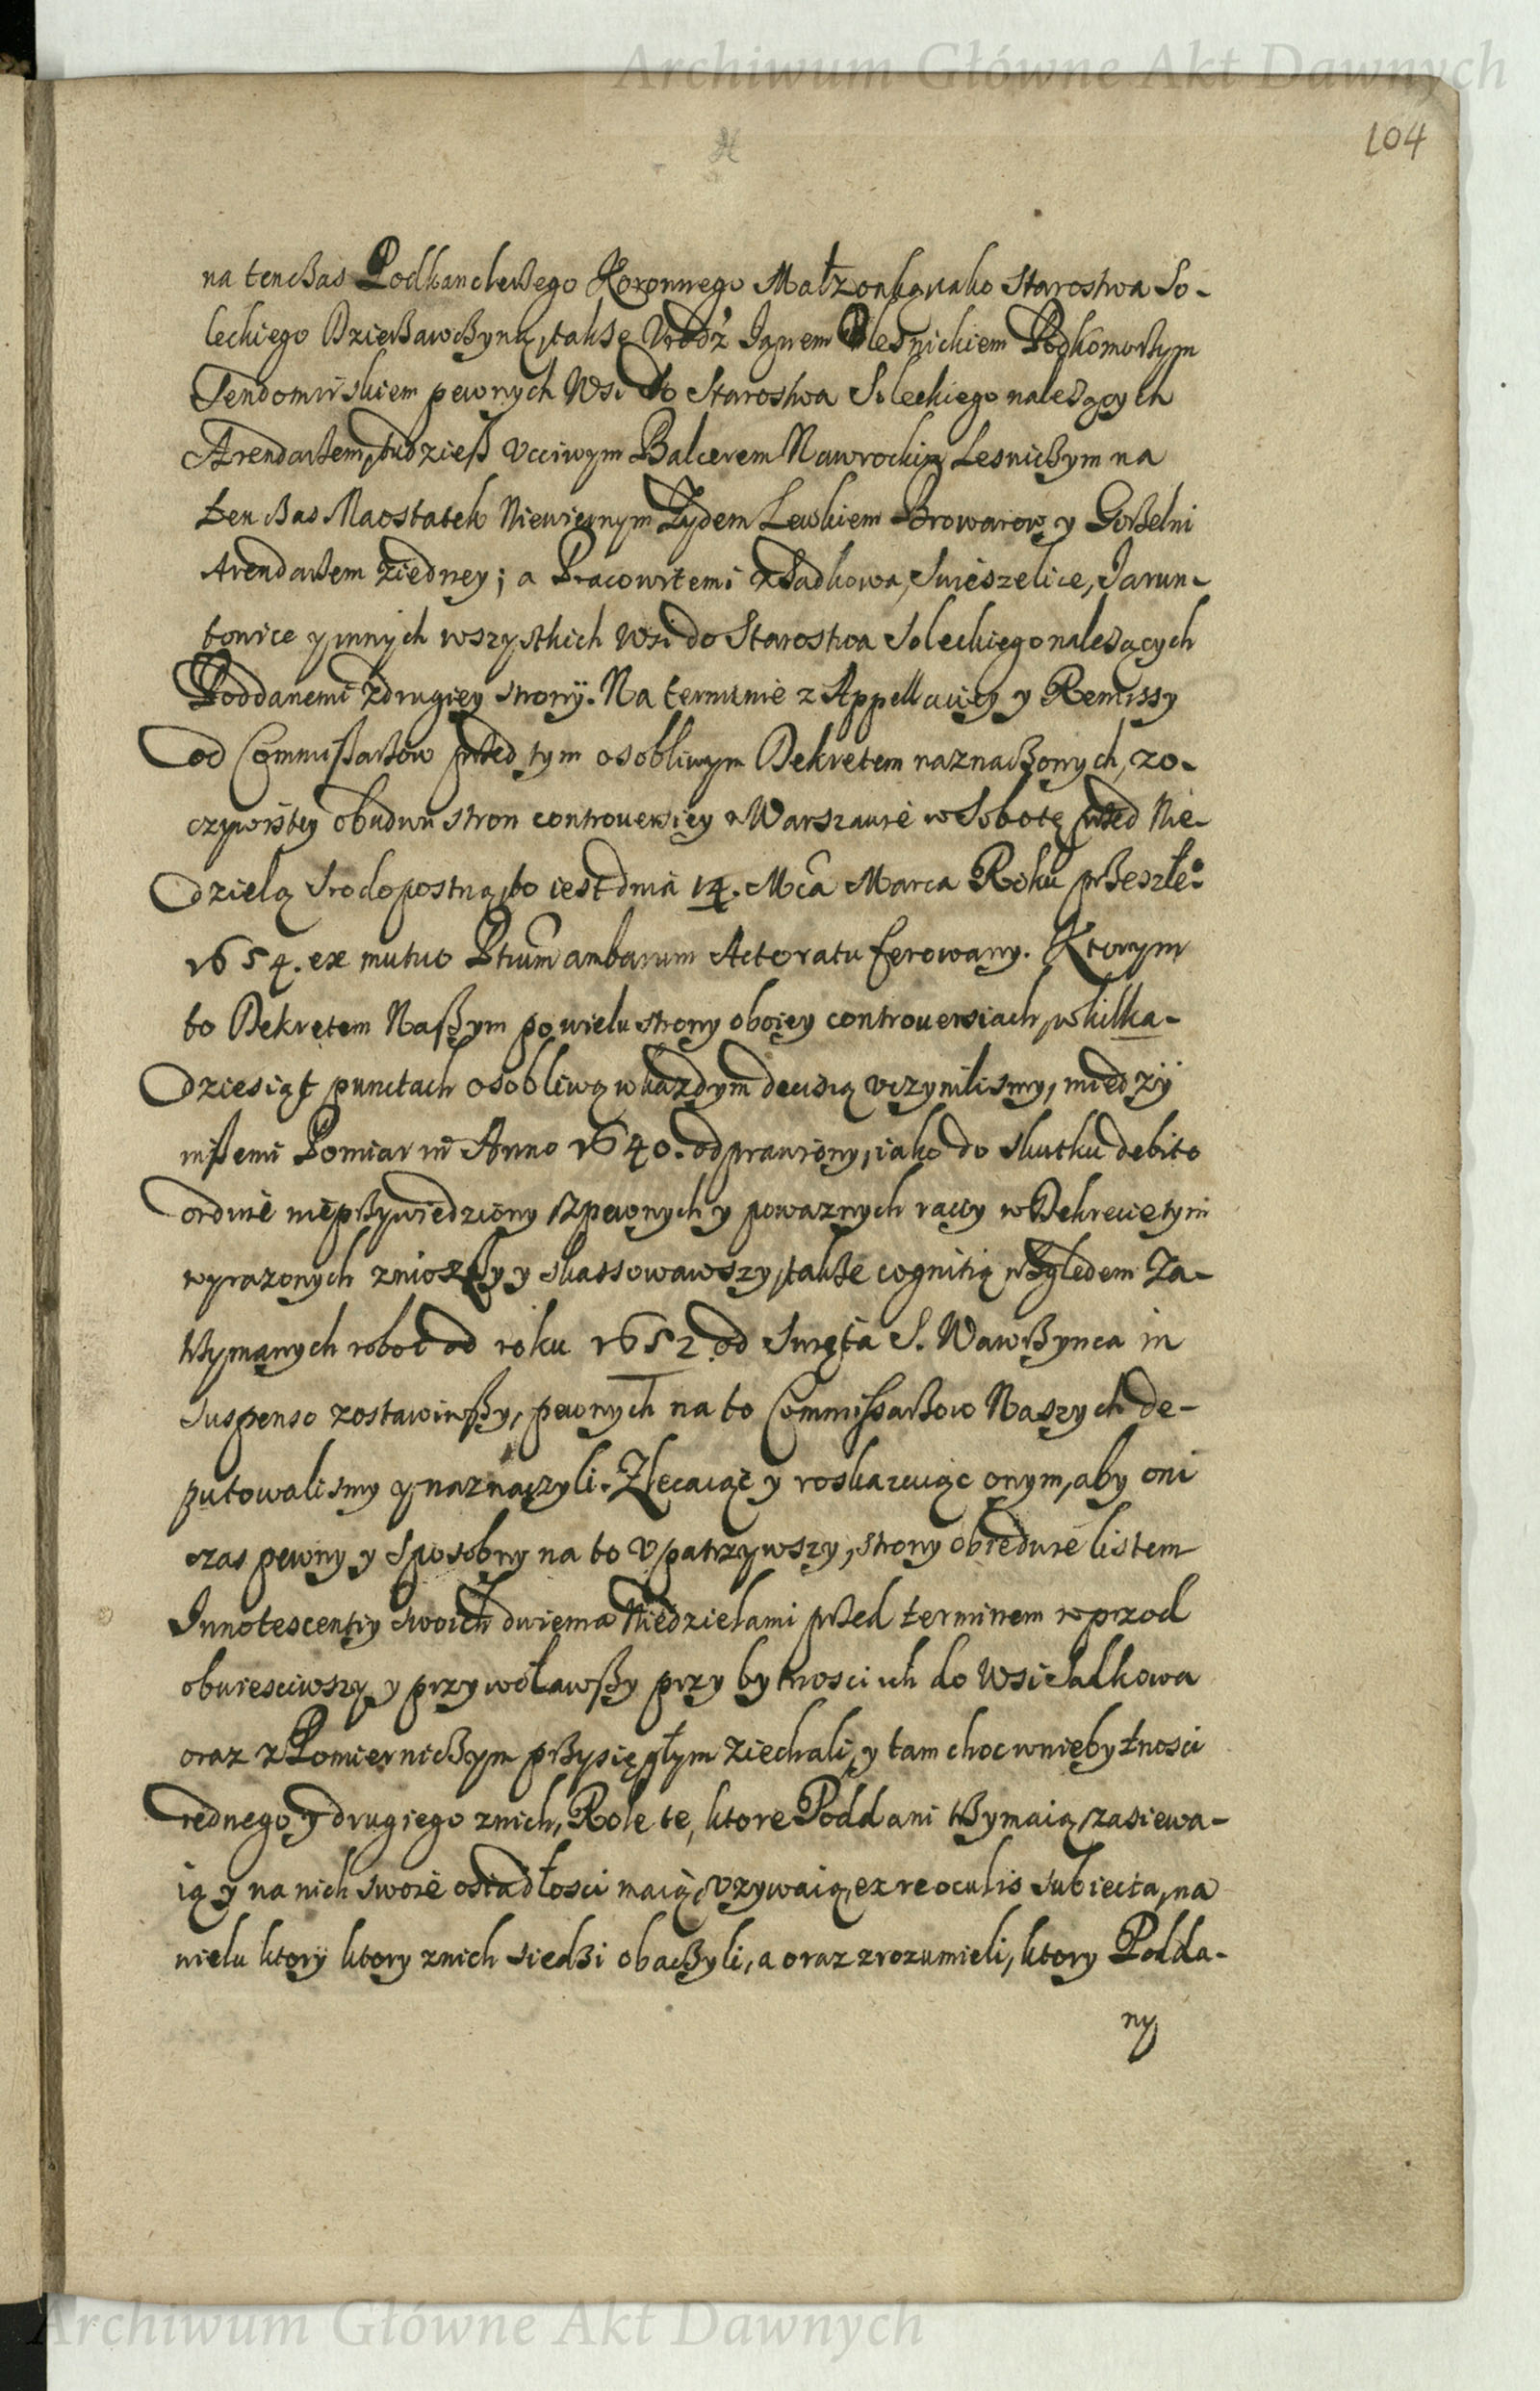 Archiwum Główne Akt Dawnych
104
na tenczas Podkanclerzego Koronnego Małzonką iako Starostwa So-
leckiego Dzierzawczyną, takze Vrodz Janem Olesnickiem Podkomorzym
Sendomirskiem pewnych Wsi do Starostwa Soleckiego nalezących
Arendarzem, tudziesz Vcciwym Balcerem Nawrockim Lesniczym na
ten czas Naostatek Niewiernym Zydem Lewkiem Browarow y Gorzelni
Arendarzem ziedney; a Pracowitemi z Sadkowa, Swieszelice, Jarun-
towice y innych wszystkich Wsi do Starostwa Soleckiego nalezących
Poddanemi zdrugiey strony. Na terminie z Appellaciey y Remissy
od Commissarzow przed tym osobliwym Dekretem naznaczonych, zo-
czywistey obudwu stron controuersiey w Warszawie w Sobotę przed Nie-
dzielą Srodopostną, to iest dnia 14. Mca Marca Roku przeszłeo
1654. ex mutuo Ptium ambarum Actoratu ferowany. Ktorym
to Dekretem Naszym po wielu strony oboiey controuersiach, w kilka-
dziesiąt punctach osobliwą w kazdym decisią vczynilismy, miedzy
inszemi Pomiar in Anno 1640. odprawiony, iako do skutku debito
ordine nieprzywiedziony z pewnych y powaznych raciy w Dekrecie tym
wyrazonych zniozszy y skassowawszy, takze cognitią względem za-
trzymanych robot od roku 1652 od Swięta S. Wawrzynca in
suspenso zostawiwszy, pewnych na to Commissarzow Naszych de-
putowalismy y naznaczyli. Zlecaiąc y roskazuiąc onym, aby oni
czas pewny y sposobny na to vpatrzywszy, strony obiedwie listem
Innotescentiy swoich dwiema Niedzielami przed terminem wprzod
obwiesciwszy y przywoławszy przy bytnosci ich do Wsi Sadkowa
oraz z Pomierniczym przysięgłym ziechali, y tam choc w niebytnosci
iednego y drugiego znich, Role te, ktore Poddani trzymaią, zasiewa-
ią y na nich swoie osiadłosci maią, vzywaią, ex re oculis subiecta, na
wielu ktory ktory znich siedzi obaczyli, a oraz zrozumieli, ktory Podda-
ny
Archiwum Główne Akt Dawnych